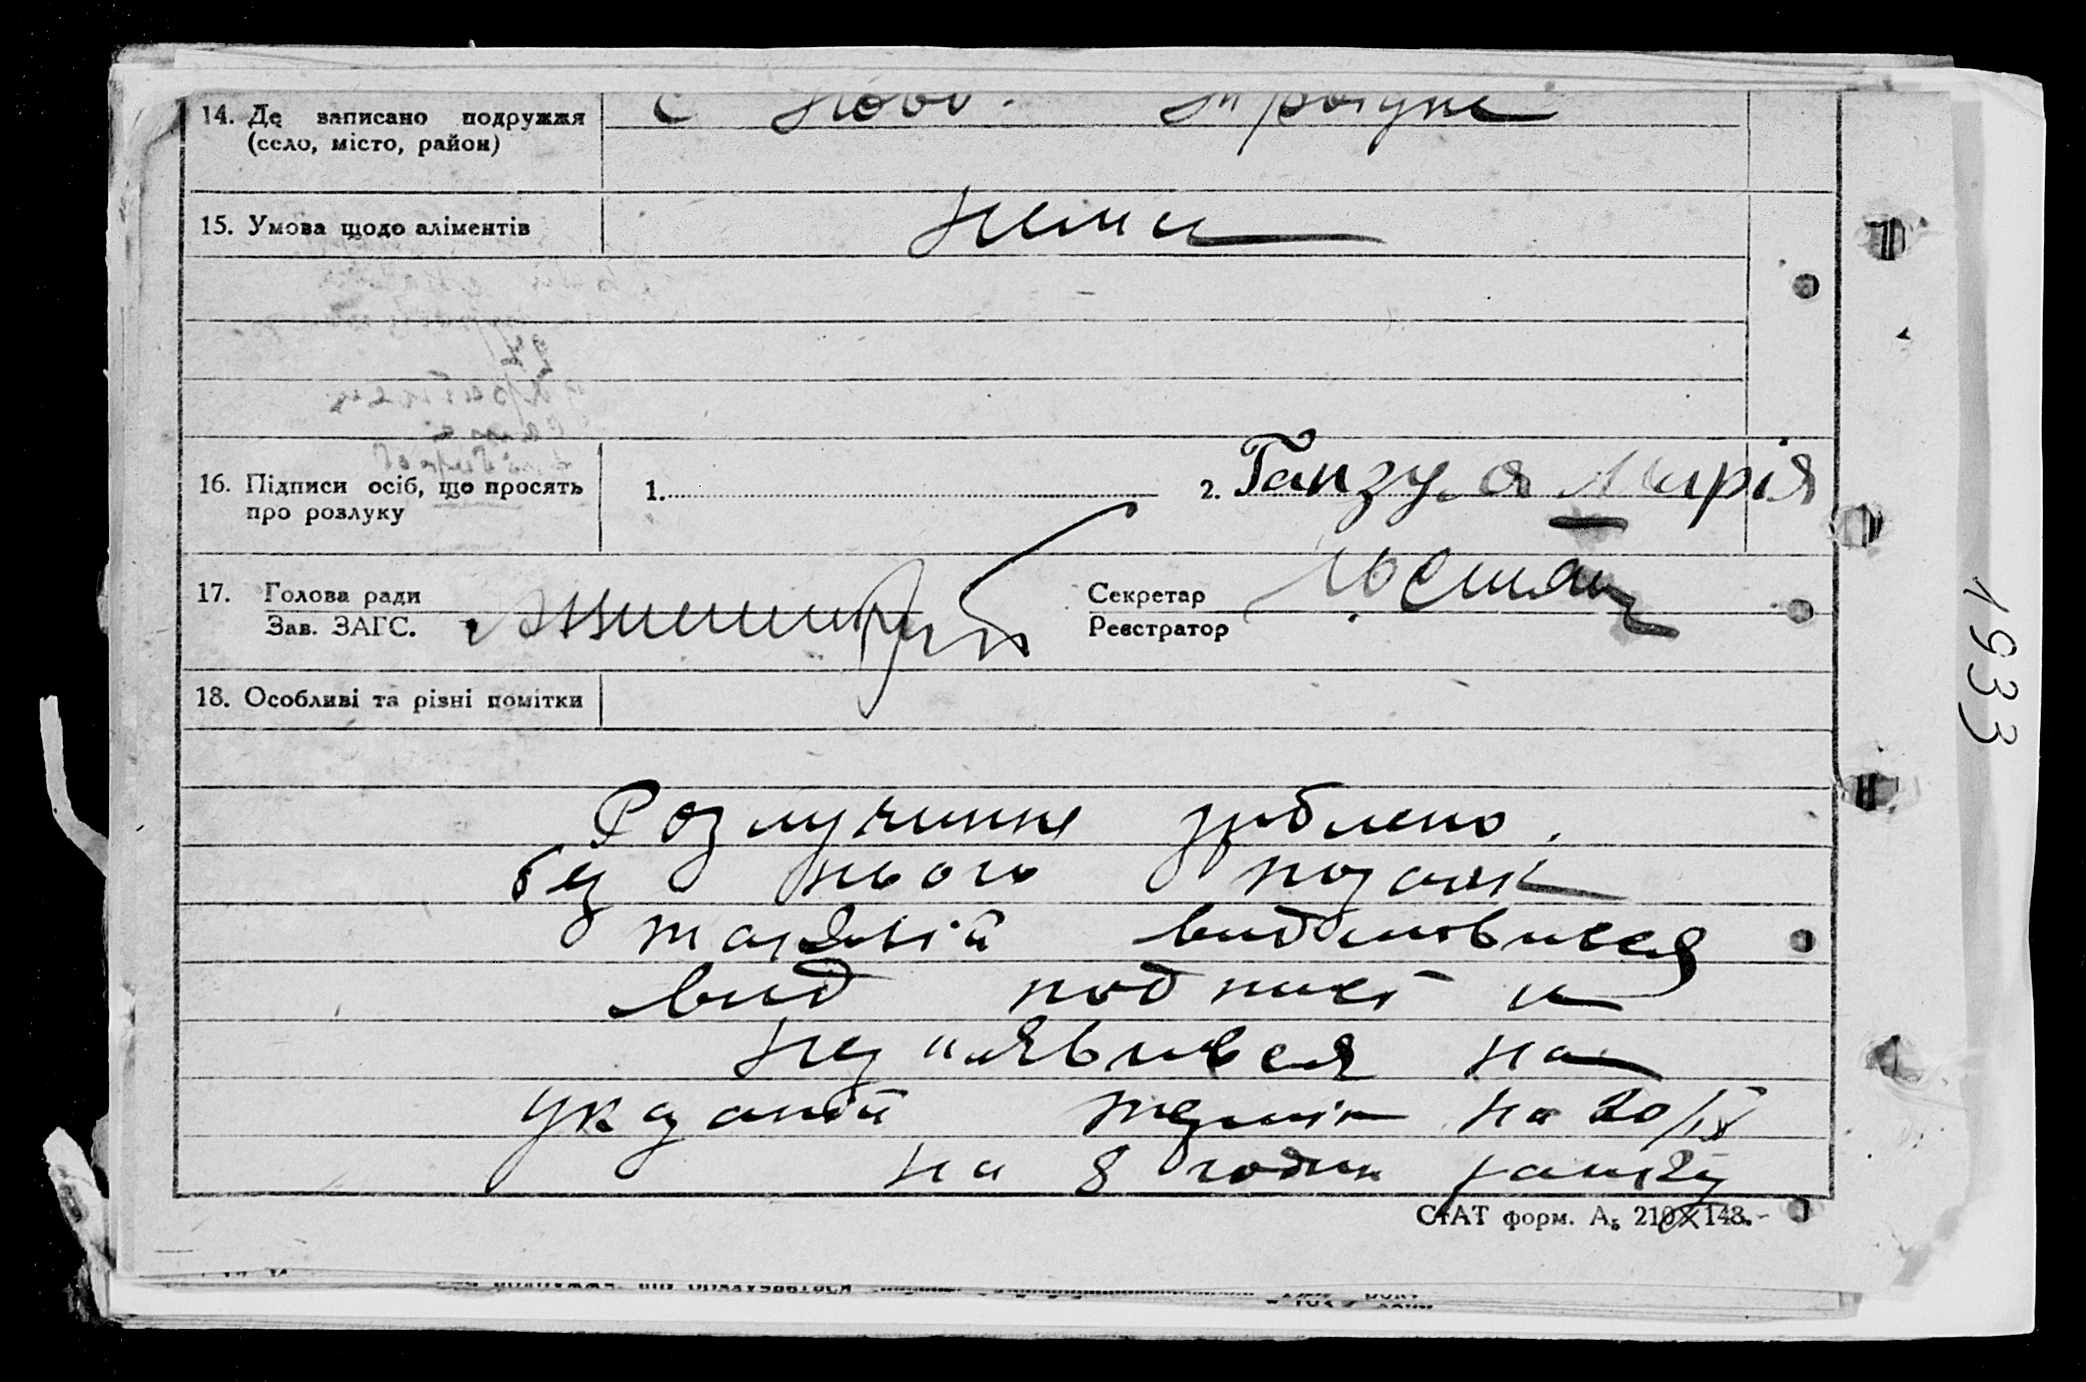 14. Де записано подружжя
(село, місто, район)
с Ново.
15. Умова щодо аліментів
нема
16. Підписи осіб, що просять
про розлуку
1.
2. Гапзуля Марія
17. Голова ради
Зав. ЗАГС.
Секретар
Реєстратор
18. Особливі та різні помітки
Розлучиння зроблено.
без нього позаяк
видмовився
вид подписі и
не зъявився на
указаний термін на 20/IX
на 8 годин ранку
СтАТ форм. А5 210×148.
1933